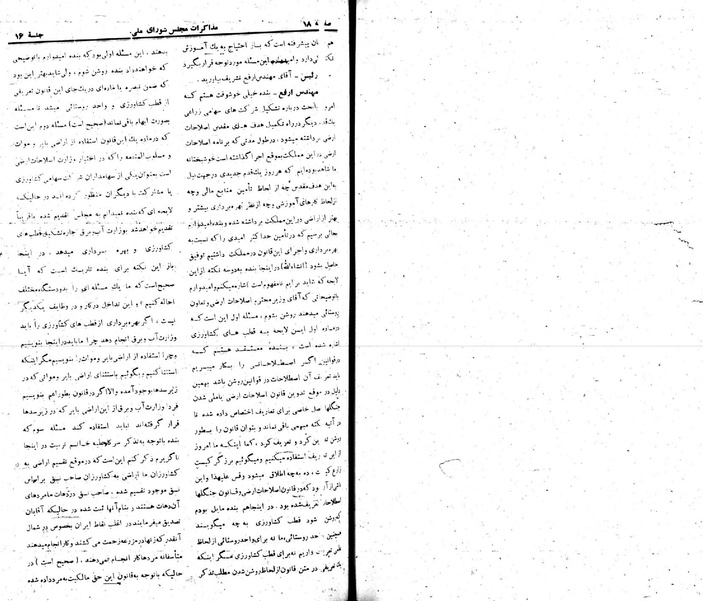 صفحه ۱۸
مذاکرات مجلس شورای ملی
جلسهٔ ۱۶
پیشرفته است که بساز احتیاج به یك آموزش
دارد و این مسئله مورد توجه قرار بگیرد
رئیس - آقای مهندس ارفع تشریف بیاورید.
مهندس ارفع - بنده خیلی خوشوقت هستم که
بحث درباره تشکیل شرکت های سهامی زراعی
یك قدم دیگر در راه تکمیل هدف های مقدس اصلاحات
ارضی برداشته میشود، در طول مدتی که برنامه اصلاحات
ارضی در این مملکت بموقع اجرا گذاشته است خوشبختانه
ما شاهد بوده‌ایم که هر روز یك قدم جدیدی در جهت نیل
به این هدف مقدس چه از لحاظ تأمین منابع مالی و چه
از لحاظ کارهای آموزشی و چه از نظر بهره برداری بیشتر و
بهتر از اراضی در این مملکت برداشته شده و بنده امیدوارم
حالی برسیم که در تأمین حداکثر امیدی را که نسبت به
بهره‌برداری و اجرای این قانون در مملکت داشتیم توفیق
حاصل بشود (انشاءالله) در اینجا بنده به دو سه نکته از این
لایحه که شاید برایم نامفهوم است اشاره میکنم و امیدوارم
با توضیحاتی که آقای وزیر محترم اصلاحات ارضی و تعاون
روستائی میدهند روشن بشوم، مسئله اول این است که
در ماده اول این لایحه به قطب های کشاورزی
اشاره شده است، بنده معتقد هستم که
در قوانین اگر اصطلاحاتی را بکار میبریم
باید تعریف آن اصطلاحات در قوانین روشن باشد بهمین
دلیل در موقع تدوین قانون اصلاحات ارضی یا ملی شدن
جنگلها فصل خاصی برای تعاریف اختصاص داده شد تا
در آتیه نکته مبهمی باقی نماند و بتوان قانون را بطور
روشن تعریف کرد، کما اینکه ما امروز
از این تعریف استفاده میکنیم و میگوئیم برزگر کیست
زارع کیست، ده به چه اطلاق میشود وقس علیهذا و این
که در قانون اصلاحات ارضی و قانون جنگلها
تعریف شده بود. در اینجا هم بنده مایل بودم
که روشن شود قطب کشاورزی به چه میگویند
حد روستائی، ما نه برای واحد روستائی از لحاظ
داریم نه برای قطب کشاورزی مگر اینکه
یك تعریفی در متن قانون از لحاظ روشن شدن مطلب تذکر
بدهند، این مسئله اولی بود که بنده امیدوارم با توضیحی
که خواهند داد بنده روشن شوم، ولی شاید بهتر این بود
که ضمن تبصره یا ماده‌ای در یك جای این قانون تعریفی
از قطب کشاورزی و واحد روستائی میشد تا مسئله
بصورت ابهام باقی نماند (صحیح است) مسئله دوم این است
که در ماده یك این قانون استفاده از اراضی بایر و موات
و مسلوب‌المنفعه را که در اختیار وزارت اصلاحات ارضی
است بعنوان یکی از سهامداران شرکت سهامی کشاورزی
یا مشارکت با دیگران منظور کرده‌اند در حالیکه
لایحه ای که بنده نمیدانم به مجلس تقدیم شده یا قریباً
تقدیم خواهد شد بوزارت آب و برق اجازه تشکیل قطب های
کشاورزی و بهره برداری میدهد، در اینجا
باز این نکته برای بنده تاریك است که آیا
صحیح است که ما یك مسئله ای را بدو دستگاه مختلف
احاله کنیم؟ و این تداخل در کار و در وظایف یکدیگر
نیست، اگر بهره برداری از قطب های کشاورزی را باید
وزارت آب و برق انجام دهد چرا ما باید در اینجا بنویسیم
و چرا استفاده از اراضی بایر و موات را بنویسیم مگر اینکه
استثنا کنیم و بگوئیم باستثنای اراضی بایر و مواتی که در
زیر سدها بوجود آمده والا اگر در قانون بطور اعم بنویسیم
فردا وزارت آب و برق از این اراضی بایر که در زیر سدها
قرار گرفته‌اند نباید استفاده کند مسئله سوم که
بنده با توجه به تذکر سرکار علیه خانم تربیت در اینجا
ناگزیرم ذکر کنم این است که در موقع تقسیم اراضی به
کشاورزان ما اراضی به کشاورزان صاحب نسق بر اساس
نسق موجود تقسیم شده، صاحب نسق در دهات ما مردهای
آن دهات هستند و بنام آنها ثبت شده در حالیکه آقایان
تصدیق میفرمایند در اغلب نقاط ایران بخصوص در شمال
آنقدر که زنها در مزرعه زحمت می کشند و کار انجام میدهند
متأسفانه مردها کار انجام نمی‌دهند، (صحیح است) در
حالیکه با توجه به قانون این حق مالکیت به مرد داده شده